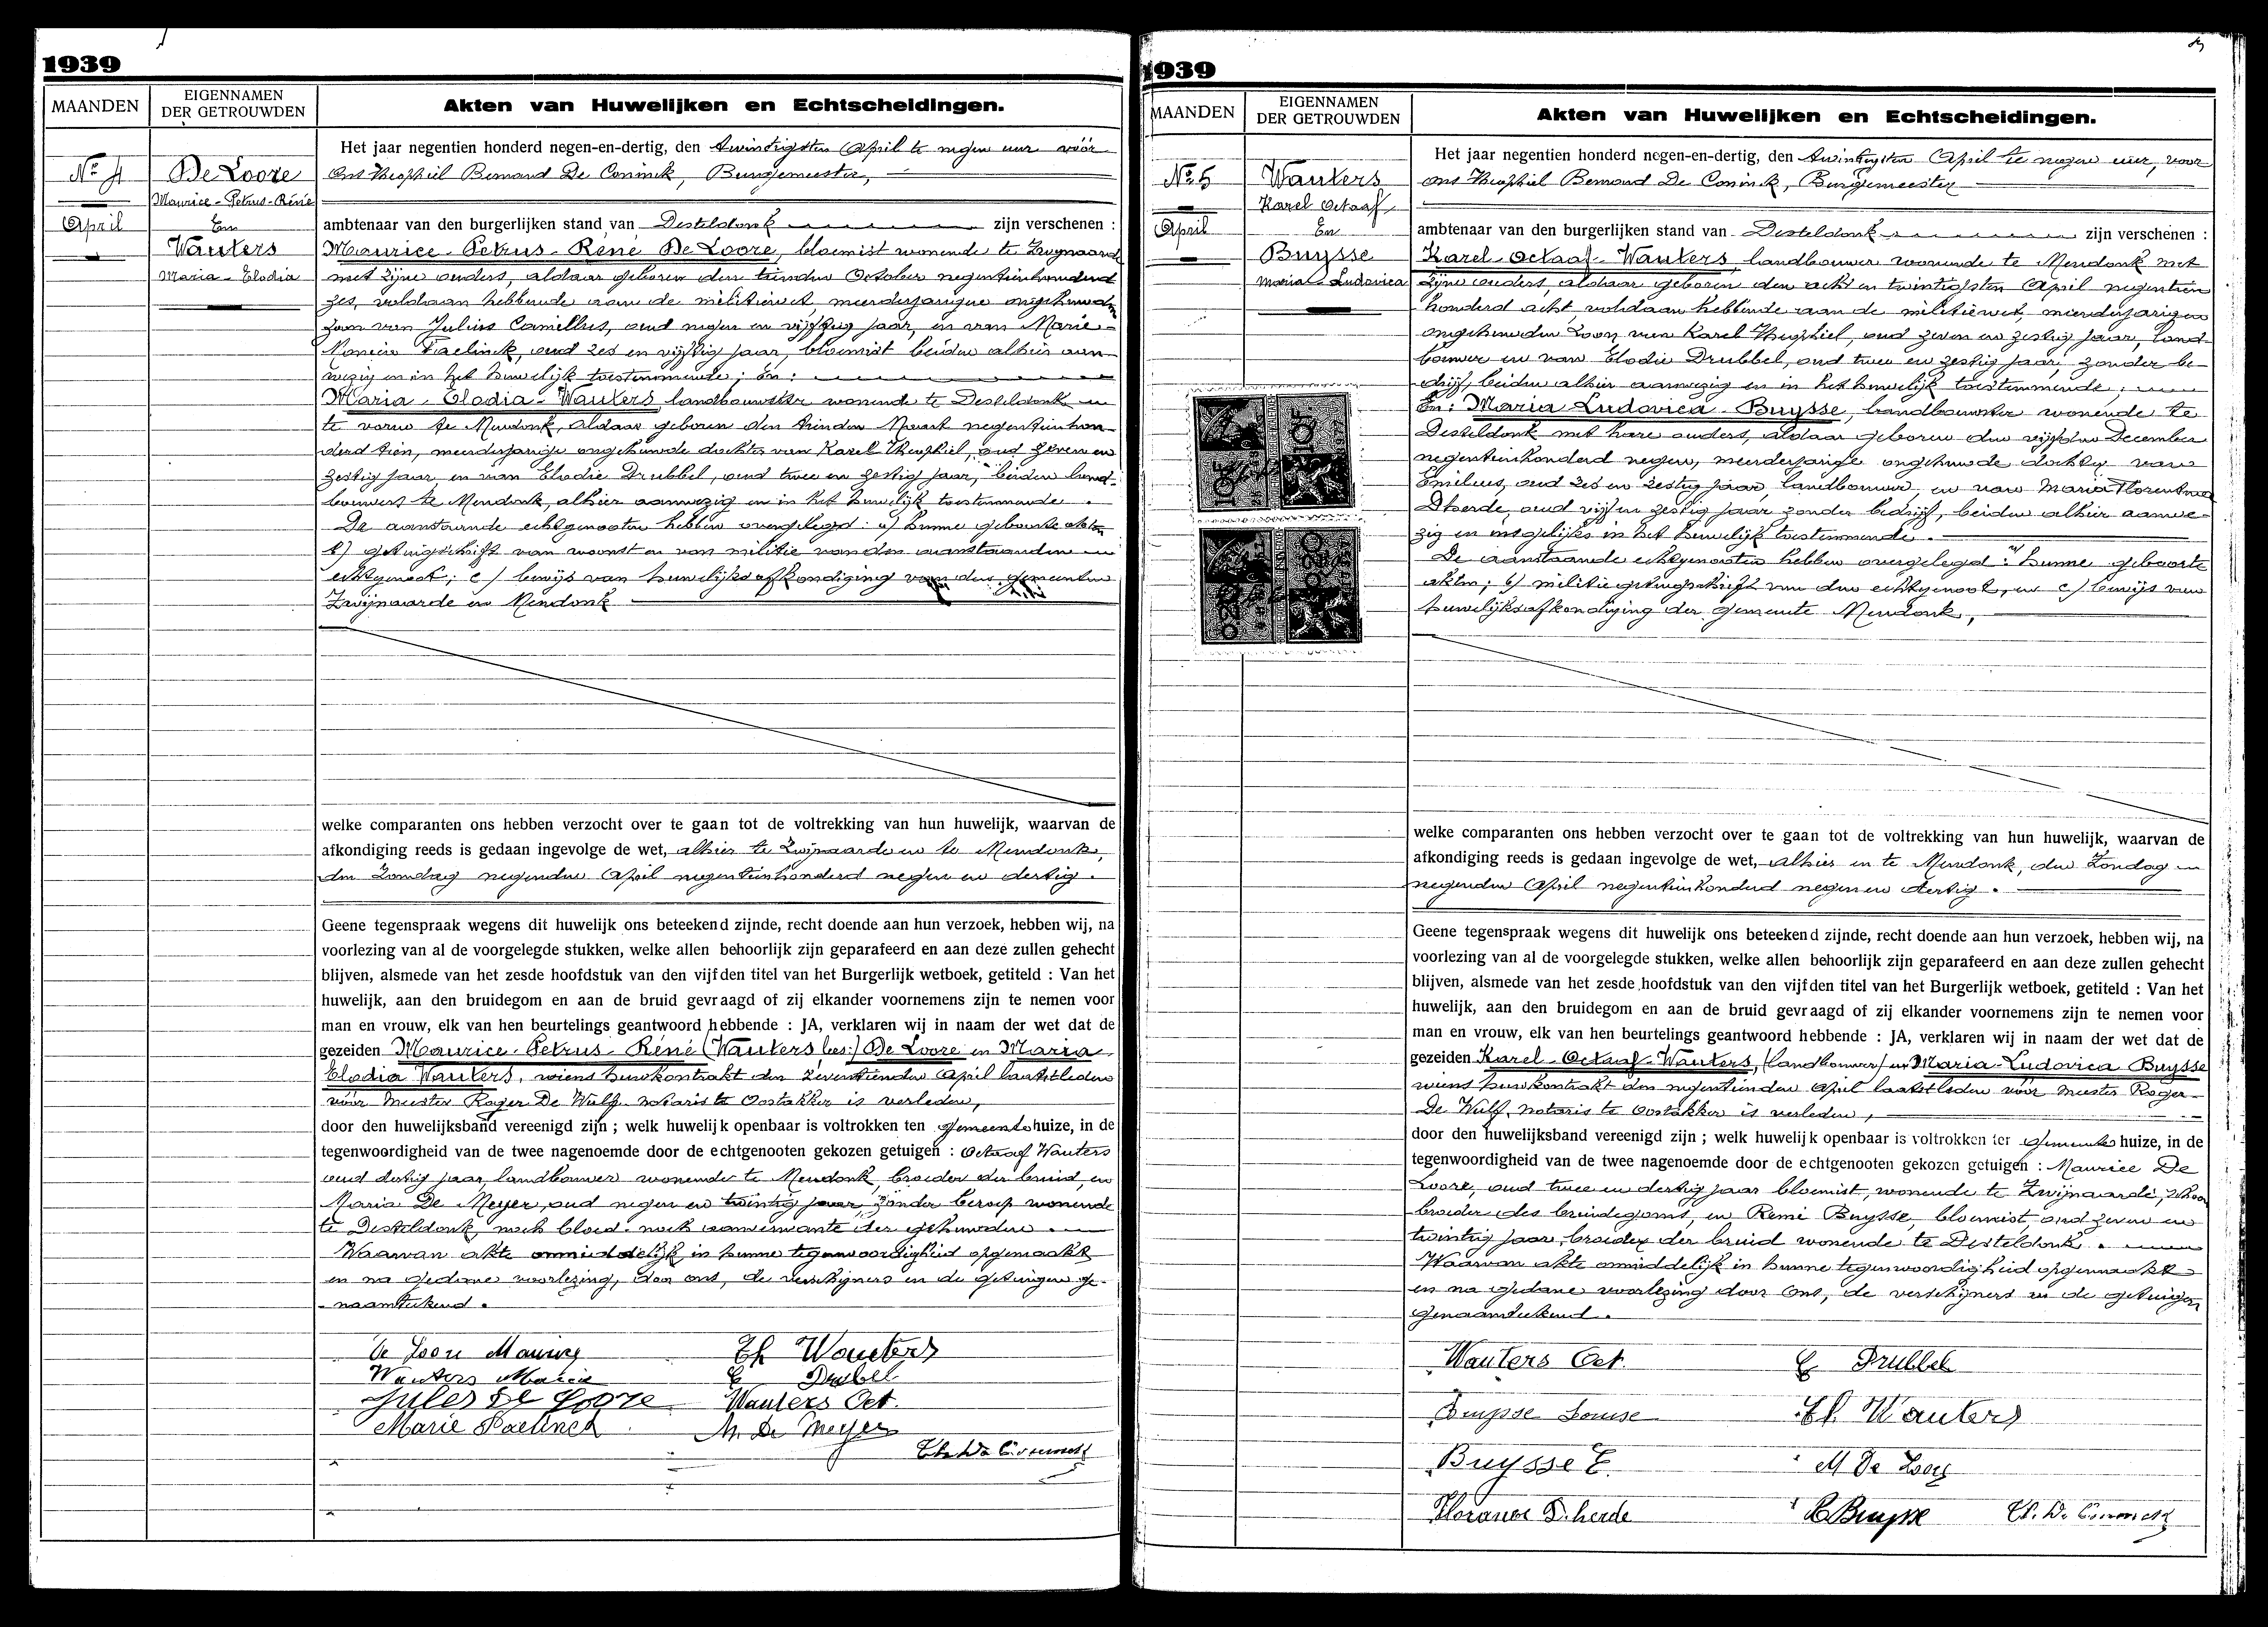 1939
MAANDEN
EIGENNAMEN
DER GETROUWDEN
Akten van Huwelijken en Echtscheidingen.
Het jaar negentien honderd negen-en-dertig, den twintigsten April te negen uur vóór
ons Theophiel Bernard De Coninck, Burgemeester,
ambtenaar van den burgerlijken stand van Desteldonk zijn verschenen :
Nr 4
De Loore
Maurice-Petrus-Réné
April
En
Wauters
Maria-Elodia
Maurice-Petrus-René De Loore, bloemist wonende te Zwijnaarde
met zijne ouders, aldaar geboren den tienden October negentienhonderd
zes, voldaan hebbende aan de militiewet meerderjarige ongehuwde
zoon van Julius Camillus, oud negen en vijftig jaar, en van Marie-
Paelinck, oud zes en vijftig jaar, bloemist beiden alhier aan-
wezig en in het huwelijk toestemmende; En:
Maria-Elodia-Wauters, landbouwster wonende te Desteldonk en
te voren te Mendonk, aldaar geboren den tienden Maart negentienhon-
derd tien, meerderjarige ongehuwde dochter van Karel Theophiel, oud zeven en
zestig jaar, en van Elodie Drubbel, oud twee en zestig jaar, beiden land-
bouwers te Mendonk, alhier aanwezig en in het huwelijk toestemmende.
De aanstaande echtgenooten hebben overgelegd: a) hunne geboorte akten
b) getuigschrift van woonst en van militie van den aanstaanden
echtgenoot; c) bewijs van huwelijksafkondiging van den gemeenten
Zwijnaarde en Mendonk
welke comparanten ons hebben verzocht over te gaan tot de voltrekking van hun huwelijk, waarvan de
afkondiging reeds is gedaan ingevolge de wet, alhier te Zwijnaarde en te Mendonk,
den Zondag negenden April negentienhonderd negen en dertig.
Geene tegenspraak wegens dit huwelijk ons beteekend zijnde, recht doende aan hun verzoek, hebben wij, na
voorlezing van al de voorgelegde stukken, welke allen behoorlijk zijn geparafeerd en aan deze zullen gehecht
blijven, alsmede van het zesde hoofdstuk van den vijfden titel van het Burgerlijk wetboek, getiteld : Van het
huwelijk, aan den bruidegom en aan de bruid gevraagd of zij elkander voornemens zijn te nemen voor
man en vrouw, elk van hen beurtelings geantwoord hebbende : JA, verklaren wij in naam der wet dat de
gezeiden Maurice-Petrus-Réné (Wauters lees:) De Loore en Maria
Elodia Wauters, wiens huwkontrakt den zeventienden April laatstleden
vóór meester Roger De Wulf notaris te Oostakker is verleden,
door den huwelijksband vereenigd zijn ; welk huwelijk openbaar is voltrokken ten gemeentehuize, in de
tegenwoordigheid van de twee nagenoemde door de echtgenooten gekozen getuigen : Octaaf Wauters
oud dertig jaar, landbouwer wonende te Mendonk, broeder der bruid, en
Maria De Meyer, oud negen en twintig jaar, zonder beroep wonende
te Desteldonk, noch bloed- noch aanverwante der gehuwden.
Waarvan akte onmiddelijk in hunne tegenwoordigheid opgemaakt
en na gedane voorlezing, door ons, de verschijners en de getuigen ge-
naamteekend.
De Loore Maurice
Th Wauters
Wauters Maria
E Drubbel
Jules De Loore
Wauters Oct.
Marie Paelinck
M. De Meyer
Th. De Coninck
1939
MAANDEN
EIGENNAMEN
DER GETROUWDEN
Akten van Huwelijken en Echtscheidingen.
Het jaar negentien honderd negen-en-dertig, den twintigsten April te negen uur, voor
ons Theophiel Bernard De Coninck, Burgemeester
ambtenaar van den burgerlijken stand van Desteldonk zijn verschenen :
Nr 5
Wauters
Karel Octaaf
April
En
Buysse
Maria-Ludovica
Karel-Octaaf-Wauters, landbouwer wonende te Mendonk met
zijne ouders, aldaar geboren den acht en twintigsten April negentien
honderd acht, voldaan hebbende aan de militiewet, meerderjarigen
ongehuwden zoon van Karel Theophiel, oud zeven en zestig jaar, land-
bouwer en van Elodie Drubbel, oud twee en zestig jaar, zonder be-
drijf, beiden alhier aanwezig en in het huwelijk toestemmende;
En: Maria Ludovica-Buysse, landbouwster wonende te
Desteldonk met hare ouders, aldaar geboren den vijfden December
negentienhonderd negen, meerderjarige ongehuwde dochter van
Emilius, oud zes en zestig jaar, landbouwer, en van Maria Florentina
D'herde, oud vijf en zestig jaar zonder bedrijf, beiden alhier aanwe-
zig en insgelijks in het huwelijk toestemmende.
De aanstaande echtgenooten hebben overgelegd: a) hunne geboorte
akten; b) militiegetuigschrift van den echtgenoot, en c) bewijs van
huwelijksafkondiging der gemeente Mendonk,
welke comparanten ons hebben verzocht over te gaan tot de voltrekking van hun huwelijk, waarvan de
afkondiging reeds is gedaan ingevolge de wet, alhier en te Mendonk, den Zondag
negenden April negentienhonderd negen en dertig.
Geene tegenspraak wegens dit huwelijk ons beteekend zijnde, recht doende aan hun verzoek, hebben wij, na
voorlezing van al de voorgelegde stukken, welke allen behoorlijk zijn geparafeerd en aan deze zullen gehecht
blijven, alsmede van het zesde hoofdstuk van den vijfden titel van het Burgerlijk wetboek, getiteld : Van het
huwelijk, aan den bruidegom en aan de bruid gevraagd of zij elkander voornemens zijn te nemen voor
man en vrouw, elk van hen beurtelings geantwoord hebbende : JA, verklaren wij in naam der wet dat de
gezeiden Karel-Octaaf-Wauters, (landbouwer) en Maria-Ludovica Buysse
wiens huwkontrakt den negentienden April laatstleden vóór meester Roger
De Wulf, notaris te Oostakker is verleden,
door den huwelijksband vereenigd zijn ; welk huwelijk openbaar is voltrokken ter gemeentehuize, in de
tegenwoordigheid van de twee nagenoemde door de echtgenooten gekozen getuigen : Maurice De
Loore, oud twee en dertig jaar bloemist, wonende te Zwijnaarde, schoon
broeder des bruidegoms, en Remi Buysse, bloemist, oud zeven en
twintig jaar, broeder der bruid wonende te Desteldonk.
Waarvan akte onmiddelijk in hunne tegenwoordigheid opgemaakt
en na gedane voorlezing door ons, de verschijners en de getuigen
genaamteekend.
Wauters Oct.
E Drubbel
Buysse Louise
Th. Wauters
Buysse E.
M De Loore
Florance D'herde
R Buysse
Th. De Coninck